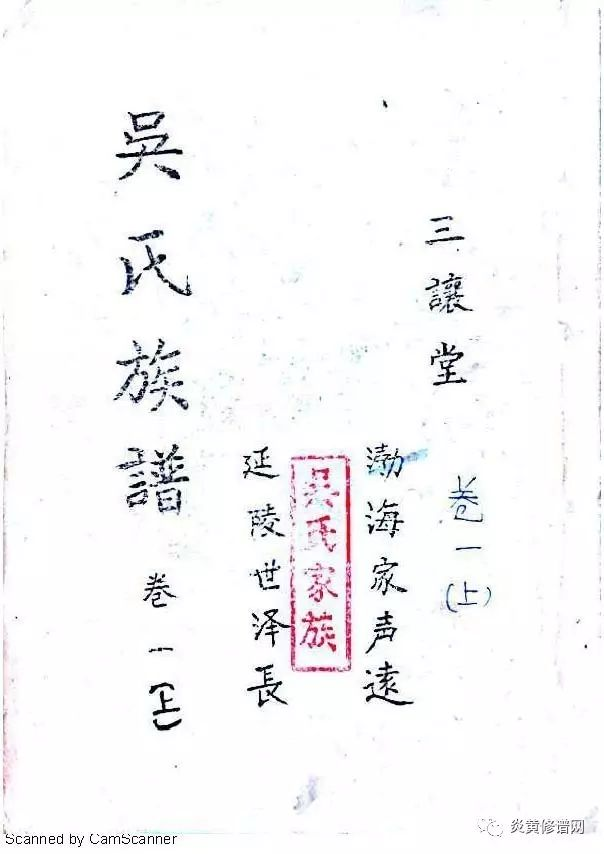 三讓堂
卷一(上)
渤海家声遠
吴氏家族
延陵世泽長
吳氏族譜
卷一(上)
Scanned by CamScanner
炎黄修谱网